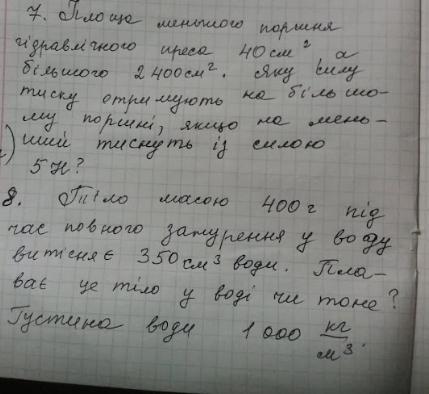 7. Площа меншого поршня
гідравлічного преса 40 см² а
більшого 2400 см². Яку силу
тиску отримують на більшо-
му поршні, якщо на мень-
ший тиснуть із силою
5 Н?
8. Тіло масою 400 г під
час повного занурення у воду
витісняє 350 см³ води. Пла-
ває це тіло у воді чи тоне?
Густина води 1000 кг/м³.